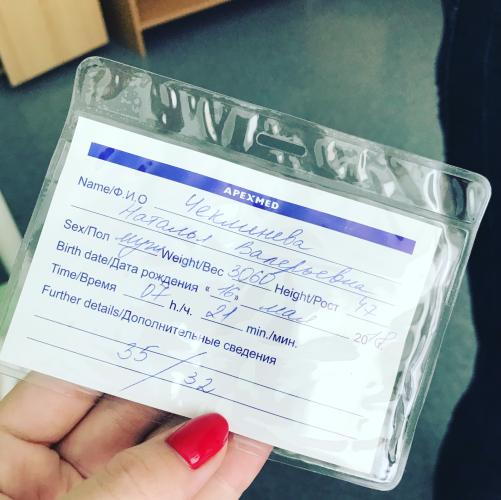 APEXMED
Name/Ф.И.О Чеклинева
Наталья Валерьевна
Sex/Пол муж Weight/Вес 3060 Height/Рост 47
Birth date/Дата рождения « 16 » мая 2018
Time/Время 07 h./ч. 21 min./мин.
Further details/Дополнительные сведения
35/32